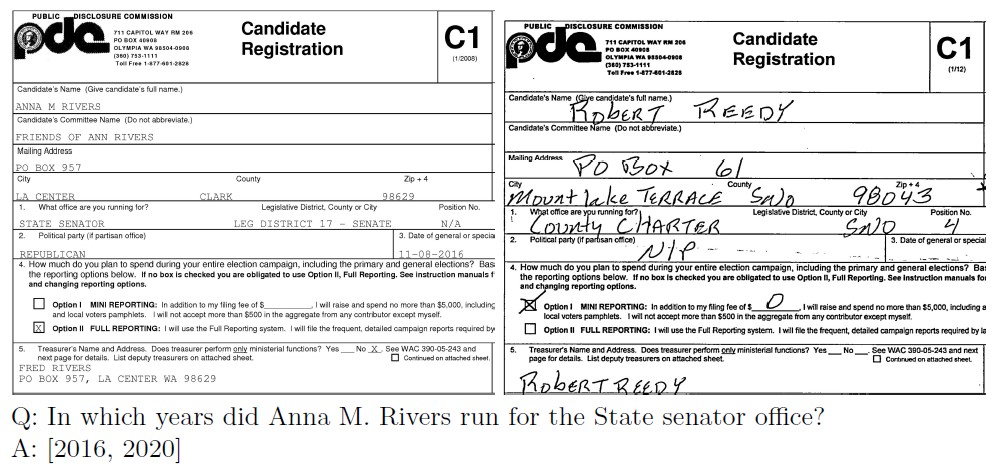 PUBLIC DISCLOSURE COMMISSION
pdc
711 CAPITOL WAY RM 206
PO BOX 40908
OLYMPIA WA 98504-0908
(360) 753-1111
Toll Free 1-877-601-2828
Candidate
Registration
C1
(1/2008)
Candidate's Name (Give candidate's full name.)
ANNA M RIVERS
Candidate's Committee Name (Do not abbreviate.)
FRIENDS OF ANN RIVERS
Mailing Address
PO BOX 957
City County Zip + 4
LA CENTER CLARK 98629
1. What office are you running for? Legislative District, County or City Position No.
STATE SENATOR LEG DISTRICT 17 - SENATE N/A
2. Political party (if partisan office) 3. Date of general or specia
REPUBLICAN 11-08-2016
4. How much do you plan to spend during your entire election campaign, including the primary and general elections? Bas
the reporting options below. If no box is checked you are obligated to use Option II, Full Reporting. See instruction manuals f
and changing reporting options.
Option I MINI REPORTING: In addition to my filing fee of $________, I will raise and spend no more than $5,000, including
and local voters pamphlets. I will not accept more than $500 in the aggregate from any contributor except myself.
X Option II FULL REPORTING: I will use the Full Reporting system. I will file the frequent, detailed campaign reports required by
5. Treasurer's Name and Address. Does treasurer perform only ministerial functions? Yes ___ No _X_. See WAC 390-05-243 and
next page for details. List deputy treasurers on attached sheet. Continued on attached sheet.
FRED RIVERS
PO BOX 957, LA CENTER WA 98629
PUBLIC DISCLOSURE COMMISSION
pdc
711 CAPITOL WAY RM 206
PO BOX 40908
OLYMPIA WA 98504-0908
(360) 753-1111
Toll Free 1-877-601-2828
Candidate
Registration
C1
(1/12)
Candidate's Name (Give candidate's full name.)
ROBERT REEDY
Candidate's Committee Name (Do not abbreviate.)
Mailing Address
PO BOX 61
City County Zip + 4
Mountlake TERRACE SNO 98043
1. What office are you running for? Legislative District, County or City Position No.
COUNTY CHARTER SNO 4
2. Political party (if partisan office) 3. Date of general or specia
N/P
4. How much do you plan to spend during your entire election campaign, including the primary and general elections? Bas
the reporting options below. If no box is checked you are obligated to use Option II, Full Reporting. See instruction manuals fo
and changing reporting options.
X Option I MINI REPORTING: In addition to my filing fee of $ 0 , I will raise and spend no more than $5,000, including a
and local voters pamphlets. I will not accept more than $500 in the aggregate from any contributor except myself.
Option II FULL REPORTING: I will use the Full Reporting system. I will file the frequent, detailed campaign reports required by la
5. Treasurer's Name and Address. Does treasurer perform only ministerial functions? Yes ___ No ___. See WAC 390-05-243 and next
page for details. List deputy treasurers on attached sheet. Continued on attached sheet.
ROBERT REEDY
Q: In which years did Anna M. Rivers run for the State senator office?
A: [2016, 2020]